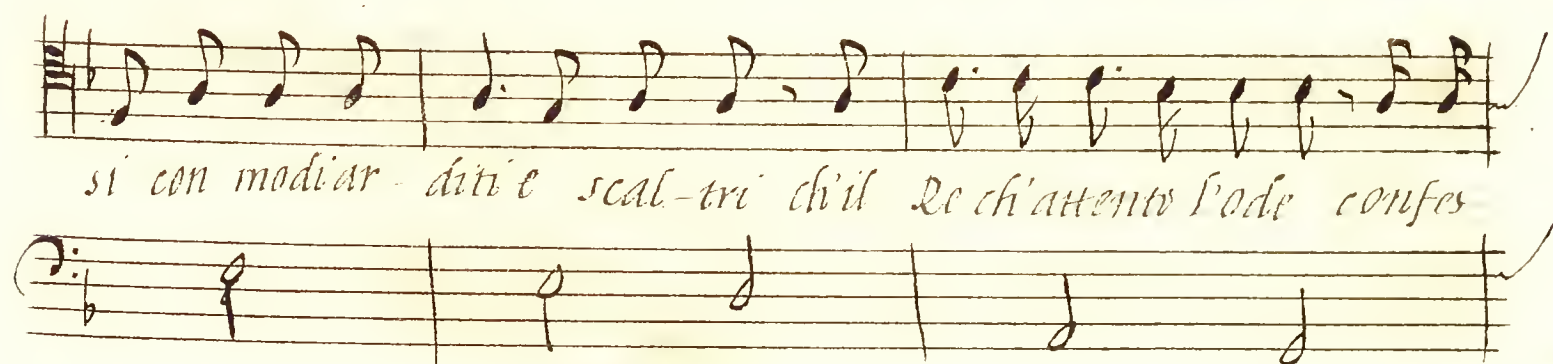 si con modi ar - diti e scal-tri ch'il Re ch'attento l'ode confes